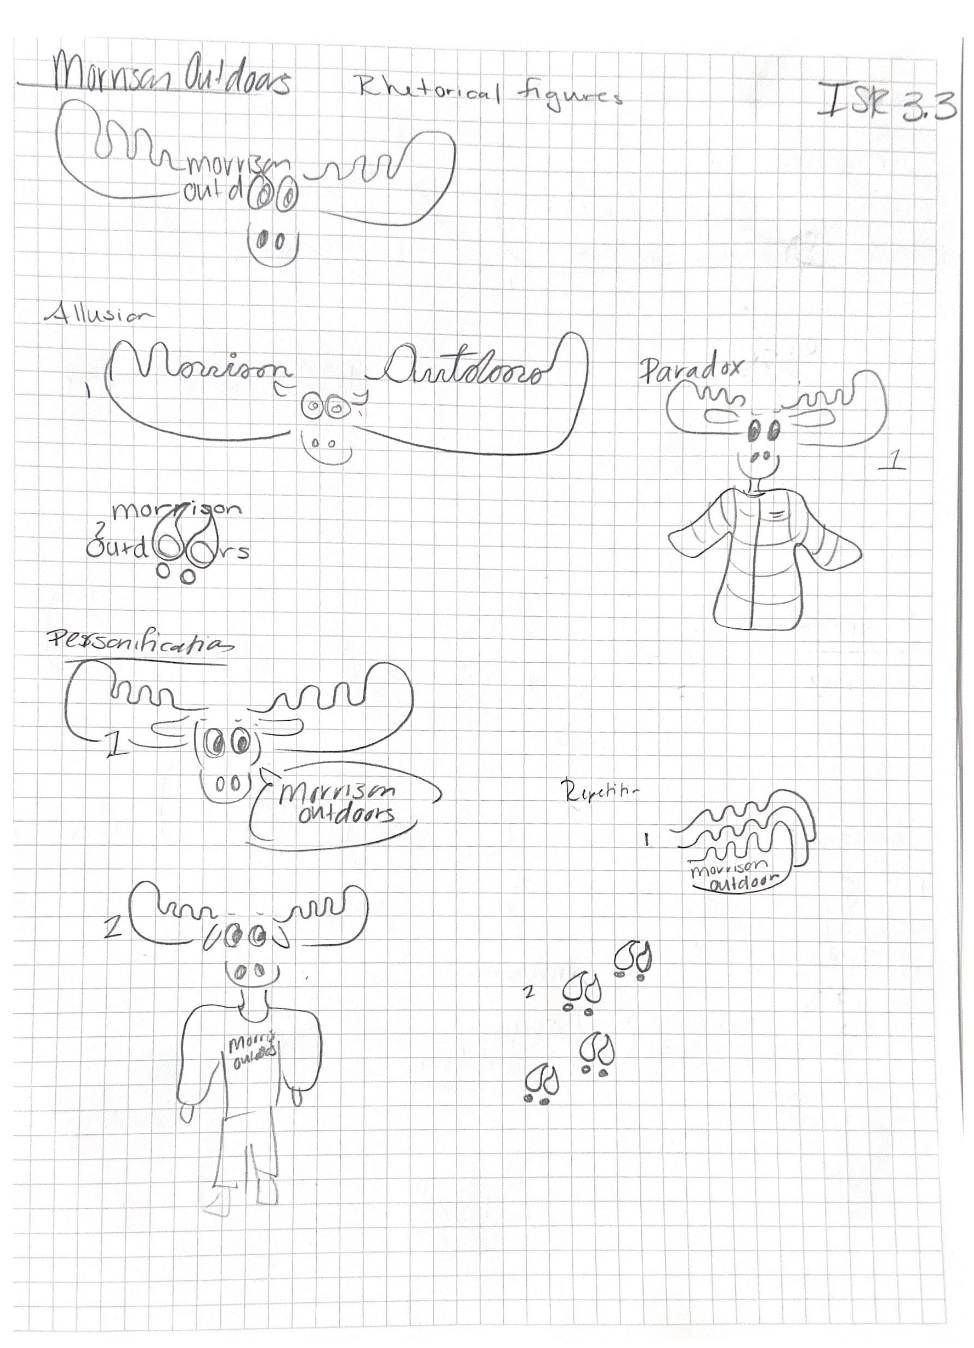 Morrison Outdoors
Rhetorical figures
ISR 3.3
morrison
outdoo
Allusion
1
Morrison Outdoors
Paradox
1
2
morrison
outdoors
Personification
1
morrison
outdoors
Repetition
1
morrison
outdoor
2
Morris
outdoors
2